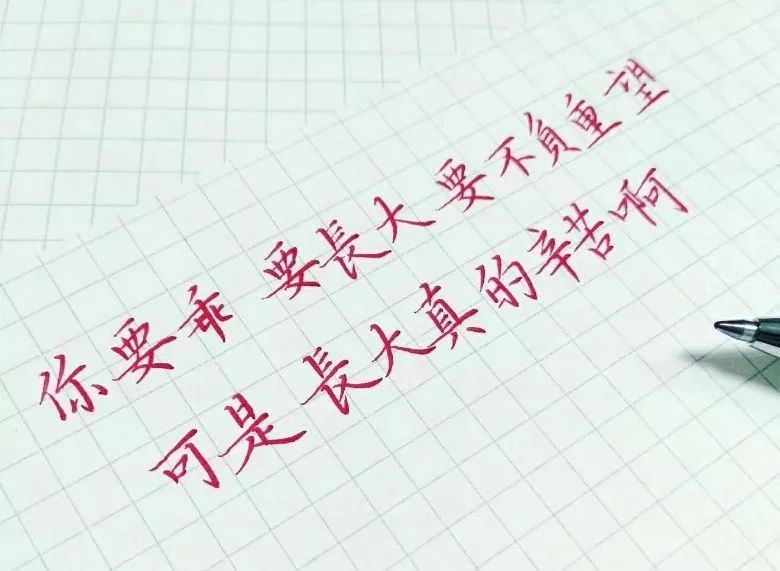 你要乖 要長大 要不負重望
可是 長大真的辛苦啊